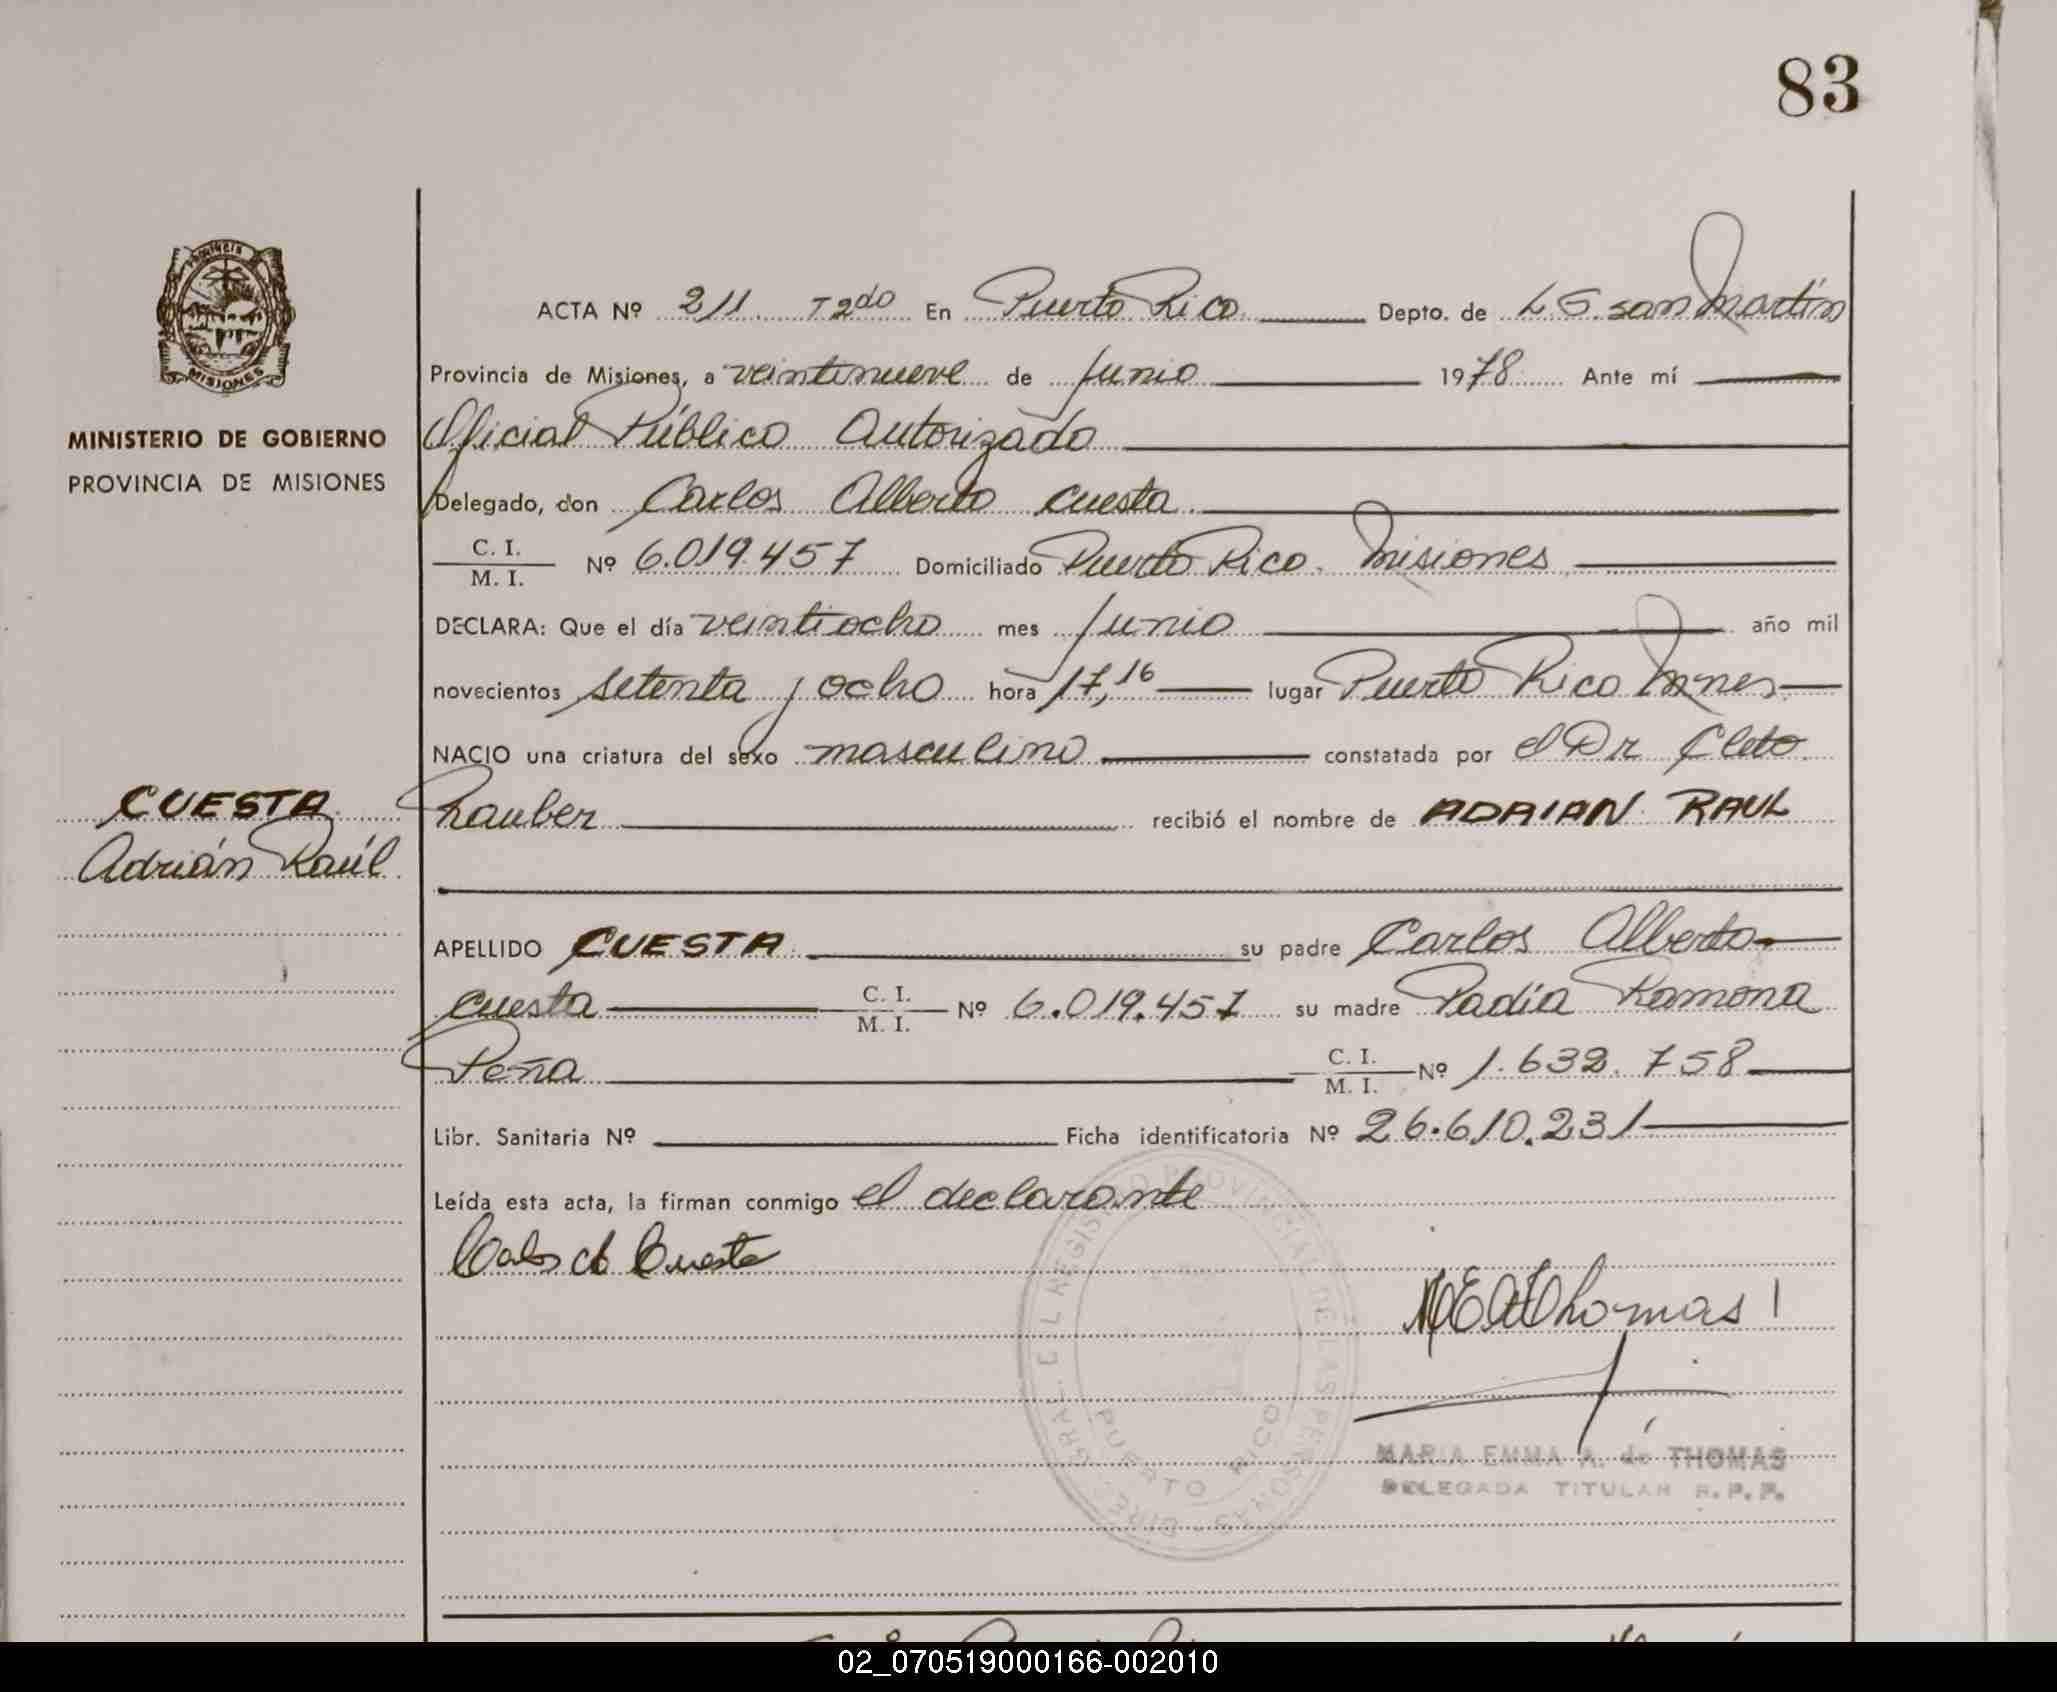 83
PROVINCIA
MISIONES
MINISTERIO DE GOBIERNO
PROVINCIA DE MISIONES
CUESTA
Adrián Raúl
ACTA Nº 211 T 2do En Puerto Rico Depto. de L G. san Martín
Provincia de Misiones, a veintinueve de Junio 1978 Ante mí
Oficial Público Autorizado
Delegado, don Carlos Alberto Cuesta
C. I.
M. I. Nº 6.019.457 Domiciliado Puerto Rico. Misiones
DECLARA: Que el día veintiocho mes Junio año mil
novecientos setenta y ocho hora 17,16 lugar Puerto Rico Mnes
NACIO una criatura del sexo masculino constatada por el Dr Cleto
Rauber recibió el nombre de ADRIAN RAUL
APELLIDO CUESTA su padre Carlos Alberto
Cuesta C. I. M. I. Nº 6.019.457 su madre Padia Ramona
Peña C. I. M. I. Nº 1.632.758
Libr. Sanitaria Nº Ficha identificatoria Nº 26.610.231
Leída esta acta, la firman conmigo el declarante
Carlos A Cuesta
M E A d Thomas
DIREC. GRAL. DEL REGISTRO PROVINCIAL DE LAS PERSONAS
PUERTO RICO
MARIA EMMA A. de THOMAS
DELEGADA TITULAR R.P.P.
02_070519000166-002010